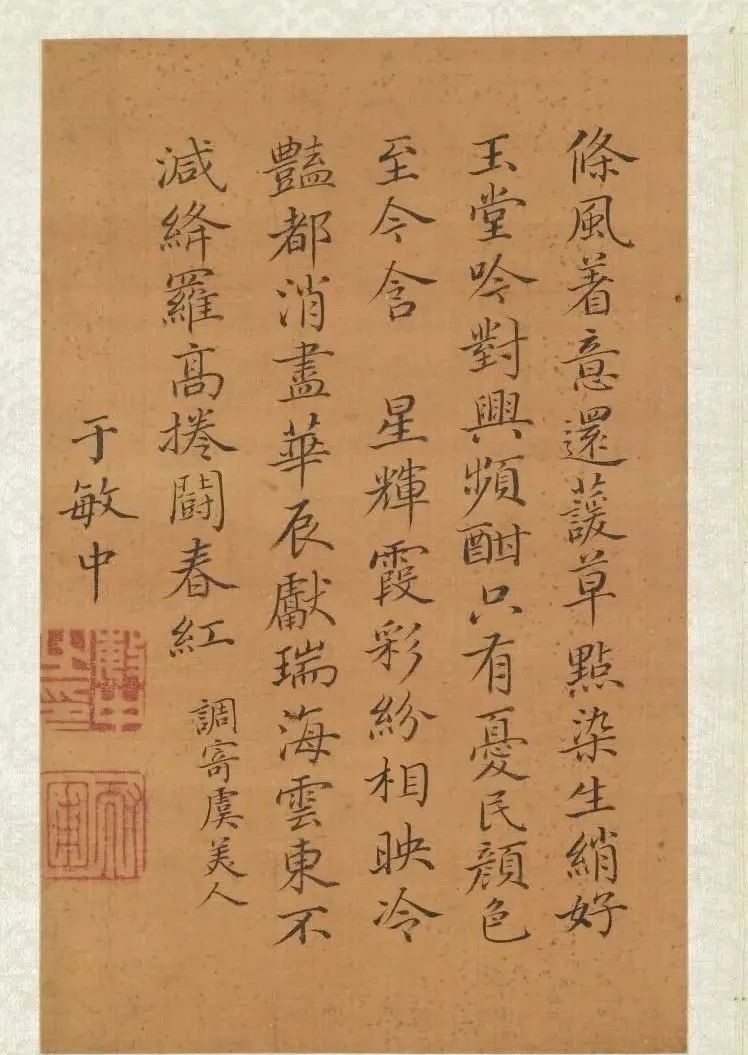 條風著意還蘐草點染生綃好
玉堂吟對興頻酣只有憂民顏色
至今含 星輝霞彩紛相映冷
豔都消盡華辰獻瑞海雲東不
減絳羅高捲鬪春紅 調寄虞美人
于敏中